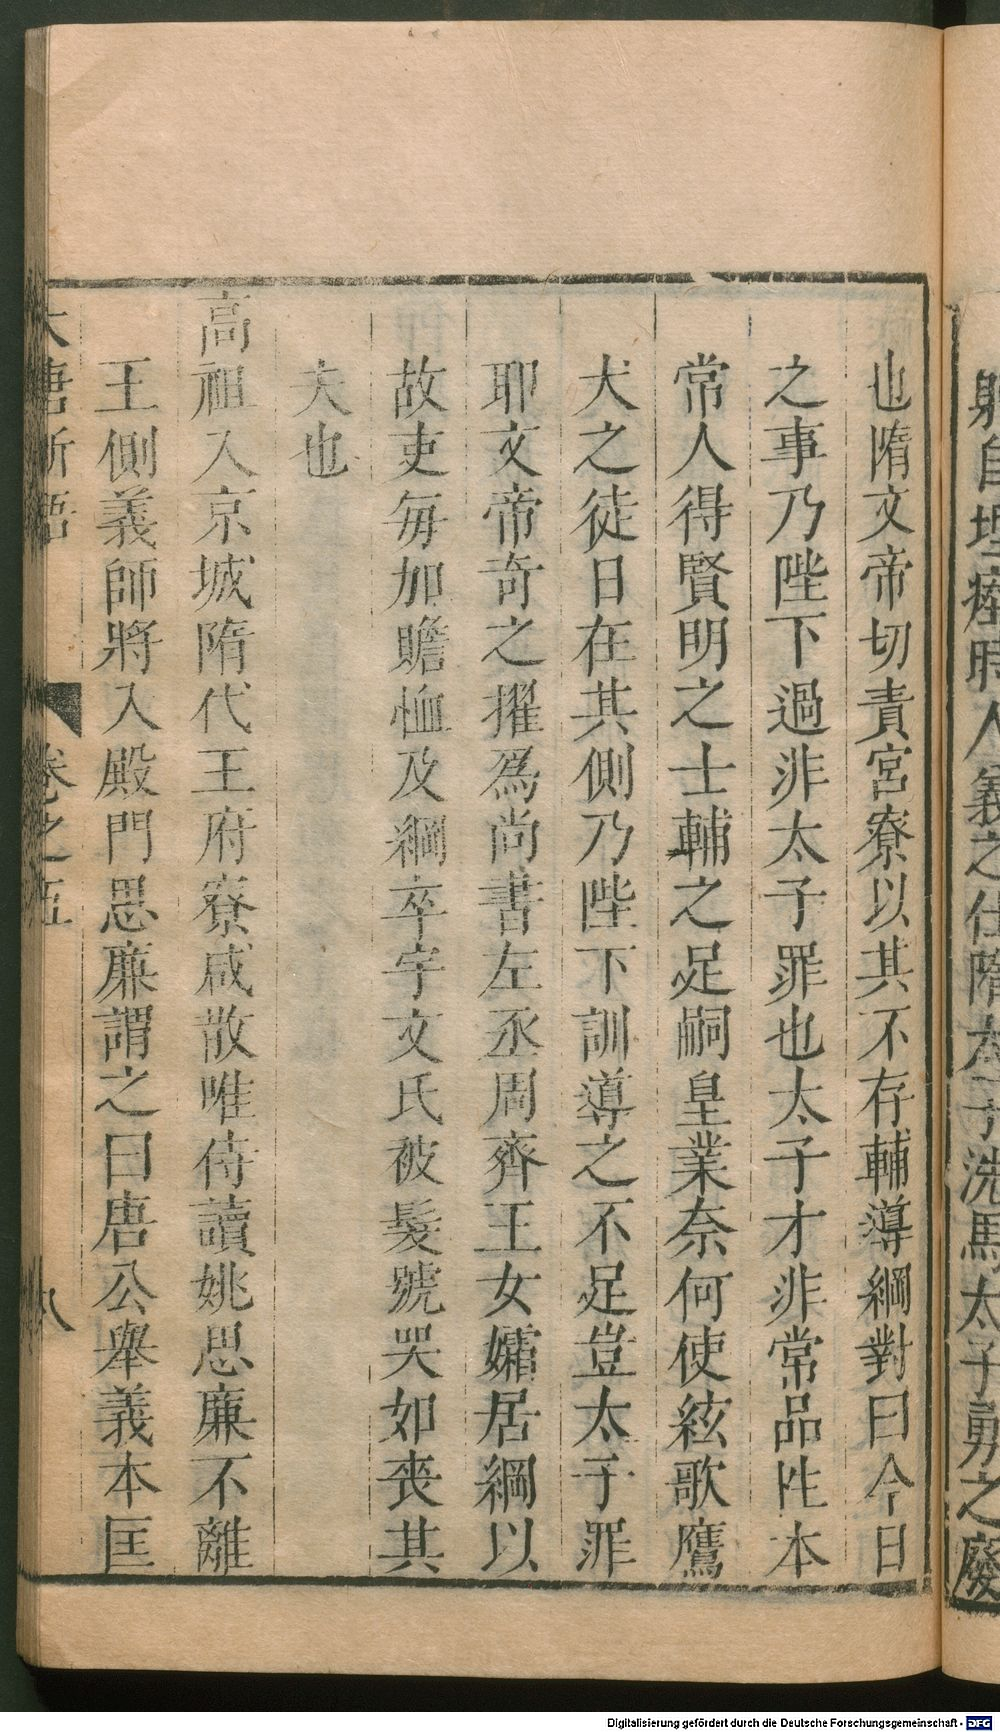 躬自埋瘞時人義之仕隋太子洗馬太子勇之廢
也隋文帝切責宮寮以其不存輔導綱對曰今日
之事乃陛下過非太子罪也太子才非常品性本
常人得賢明之士輔之足嗣皇業奈何使絃歌鷹
犬之徒日在其側乃陛下訓導之不足豈太子罪
耶文帝奇之擢爲尚書左丞周齊王女孀居綱以
故吏每加贍恤及綱卒宇文氏被髮號哭如喪其
夫也
高祖入京城隋代王府寮咸散唯侍讀姚思廉不離
王側義師將入殿門思廉謂之曰唐公舉義本匡
大唐新語 卷之五 八
Digitalisierung gefördert durch die Deutsche Forschungsgemeinschaft - DFG